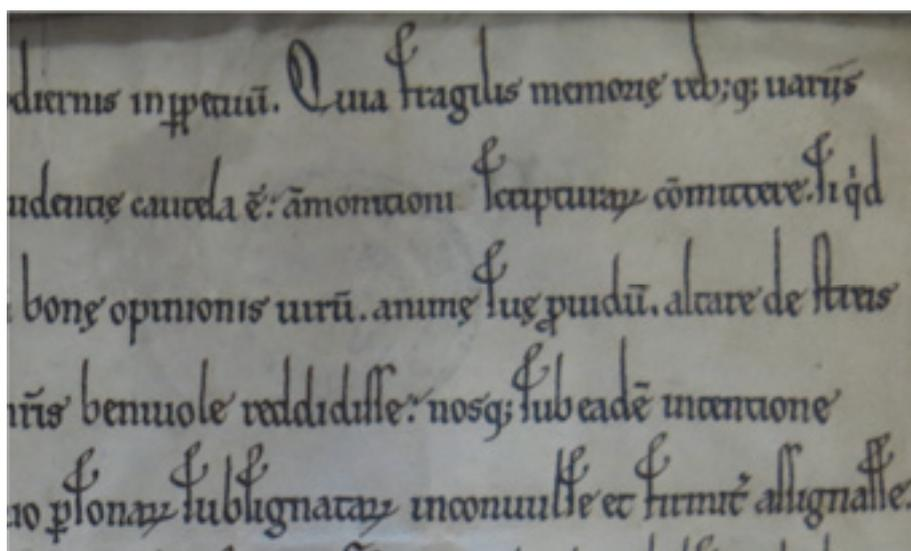 diernis in ꝑpetuū. Quia fragilis memorię reb;q; uariis
udentię cautela ē: āmonitioni scripturaꝝ cōmittere. si qd
bonę opinionis uirū. animę suę ꝓuidū. altare de
nr̄is beniuole reddidisse: nosq; sub eadē intentione
uo ꝑsonaꝝ subsignataꝝ inconuulse et firmit̄ assignasse.